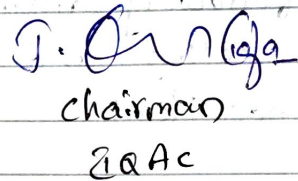 chairman
IQAC